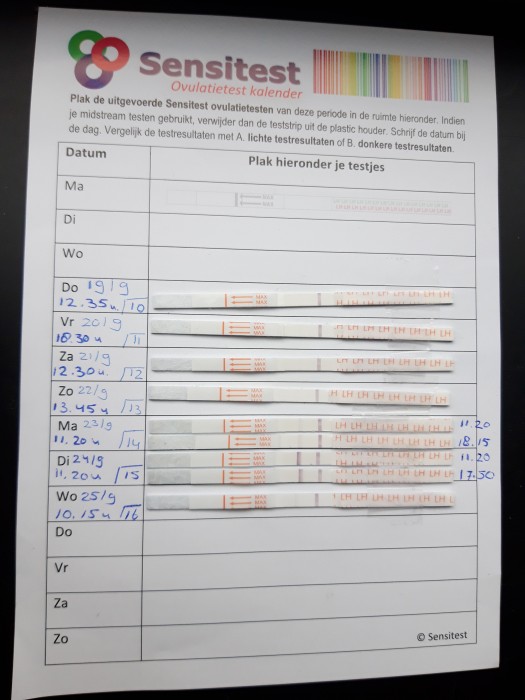 Sensitest
Ovulatietest kalender
Plak de uitgevoerde Sensitest ovulatietesten van deze periode in de ruimte hieronder. Indien
je midstream testen gebruikt, verwijder dan de teststrip uit de plastic houder. Schrijf de datum bij
de dag. Vergelijk de testresultaten met A. lichte testresultaten of B. donkere testresultaten.
Datum
Plak hieronder je testjes
Ma
Di
Wo
Do 19/9
12.35u. /10
MAX
MAX
LH LH LH LH LH LH
Vr 20/9
18.30 u /11
MAX
MAX
LH LH LH LH LH LH LH
Za 21/9
12.30u. /12
MAX
MAX
LH LH LH LH LH LH LH
Zo 22/9
13.45 u /13
MAX
MAX
H LH LH LH LH LH LH
Ma 23/9
11.20 u /14
MAX
MAX
LH LH LH LH LH LH LH
11.20
MAX
MAX
LH LH LH LH LH LH LH
18.15
Di 24/9
11.20u /15
MAX
MAX
11.20
MAX
MAX
LH LH LH LH LH LH LH
17.30
Wo 25/9
10.15 u /16
MAX
MAX
LH LH LH LH LH LH LH L
Do
Vr
Za
Zo
© Sensitest